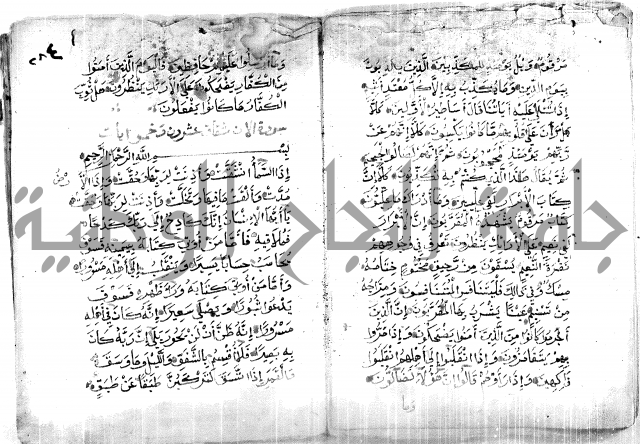 مرقوم ويل يومئذ للمكذبين الذين يكذبون
بيوم الدين وما يكذب به إلا كل معتد أثيم
إذا تتلى عليه آياتنا قال أساطير الأولين كلا
بل ران على قلوبهم ما كانوا يكسبون كلا إنهم عن
ربهم يومئذ لمحجوبون ثم إنهم لصالو الجحيم
ثم يقال هذا الذي كنتم به تكذبون كلا إن
كتاب الأبرار لفي عليين وما أدراك ما عليون
كتاب مرقوم يشهده المقربون إن الأبرار
لفي نعيم على الأرائك ينظرون تعرف في وجوههم
نضرة النعيم يسقون من رحيق مختوم ختامه
مسك وفي ذلك فليتنافس المتنافسون ومزاجه
من تسنيم عينا يشرب بها المقربون إن الذين
أجرموا كانوا من الذين آمنوا يضحكون وإذا مروا
بهم يتغامزون وإذا انقلبوا إلى أهلهم انقلبوا
فاكهين وإذا رأوهم قالوا إن هؤلاء لضالون
وما
وما أرسلوا عليهم حافظين فاليوم الذين آمنوا
من الكفار يضحكون على الأرائك ينظرون هل ثوب
الكفار ما كانوا يفعلون
سورة الانشقاق عشرون وخمس آيات
بسم الله الرحمن الرحيم
إذا السماء انشقت وأذنت لربها وحقت وإذا الأرض
مدت وألقت ما فيها وتخلت وأذنت لربها وحقت
يا أيها الإنسان إنك كادح إلى ربك كدحا
فملاقيه فأما من أوتي كتابه بيمينه فسوف
يحاسب حسابا يسيرا وينقلب إلى أهله مسرورا
وأما من أوتي كتابه وراء ظهره فسوف
يدعوا ثبورا ويصلى سعيرا إنه كان في أهله
مسرورا إنه ظن أن لن يحور بلى إن ربه كان
به بصيرا فلا أقسم بالشفق والليل وما وسق
والقمر إذا اتسق لتركبن طبقا عن طبق
جامعة النجاح الوطنية